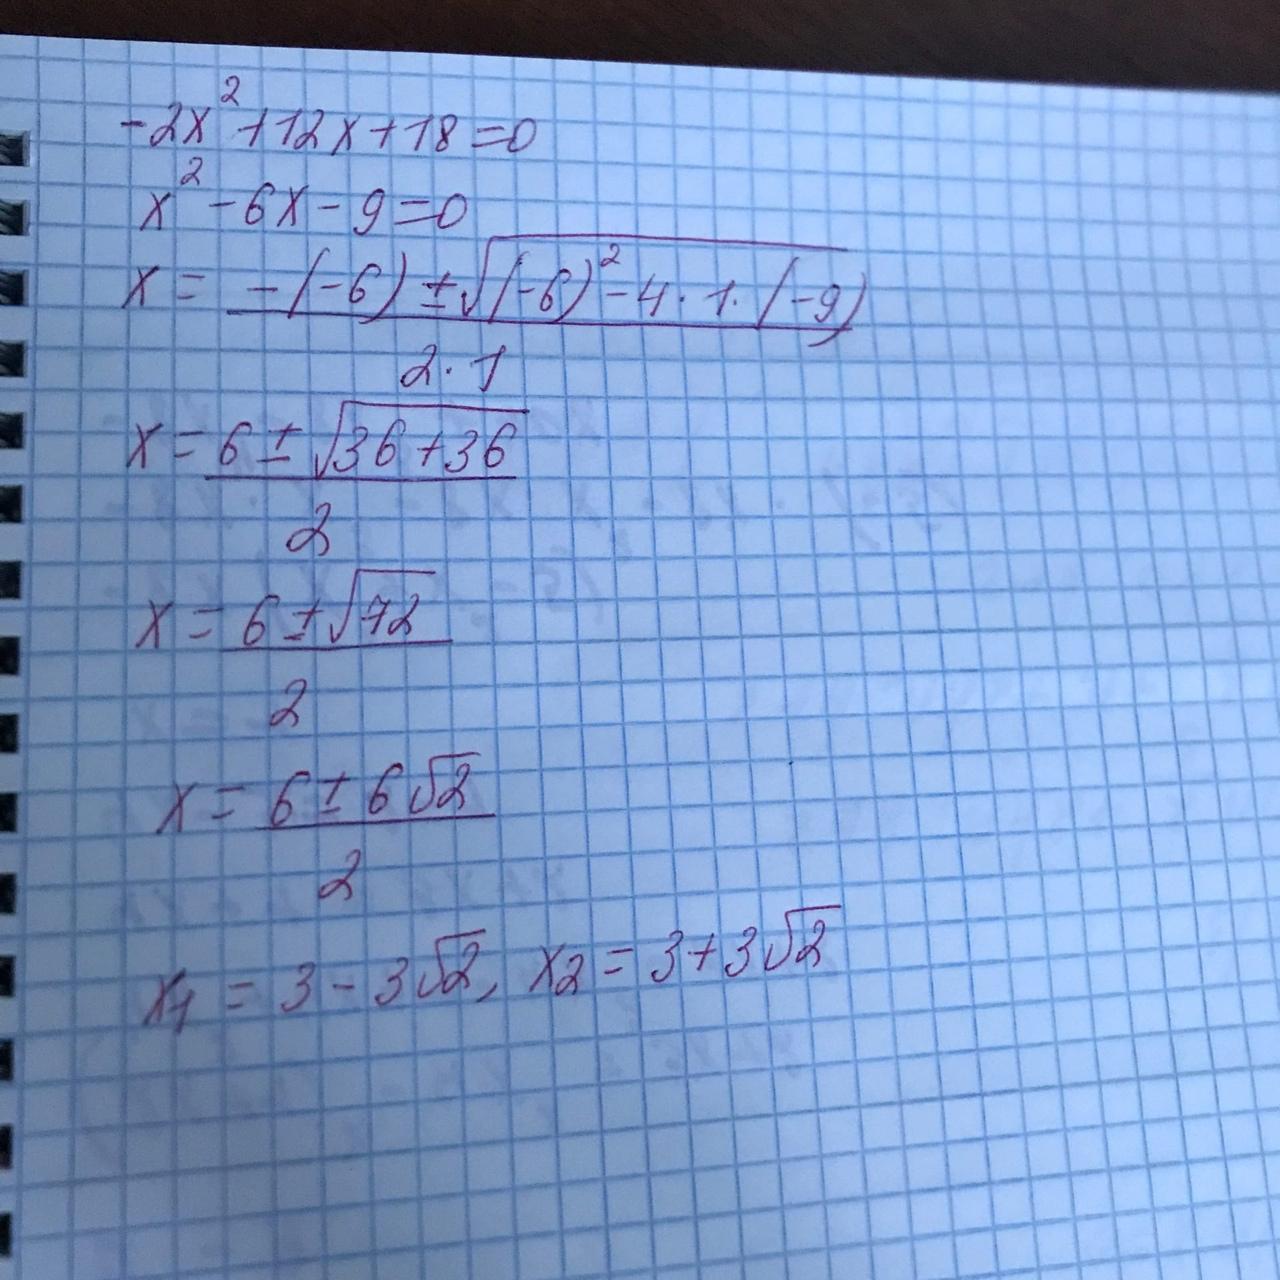 -2x²+12x+18=0
x²-6x-9=0
x = (-(-6)±√((-6)²-4·1·(-9)))/(2·1)
x = (6±√(36+36))/2
x = (6±√72)/2
x = (6±6√2)/2
x₁ = 3-3√2, x₂ = 3+3√2